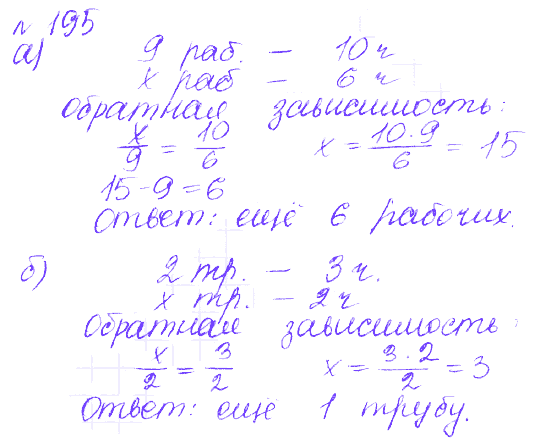 № 195
а) 9 раб. — 10 ч
х раб — 6 ч
Обратная зависимость:
х/9 = 10/6 х = 10·9/6 = 15
15-9=6
Ответ: ещё 6 рабочих.
б) 2 тр. — 3 ч.
х тр. — 2 ч
Обратная зависимость
х/2 = 3/2 х = 3·2/2 = 3
Ответ: ещё 1 трубу.